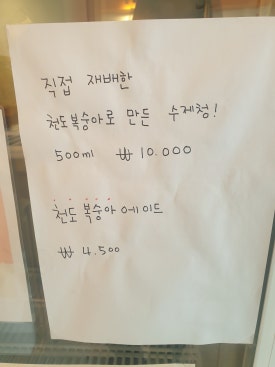 직접 재배한
천도복숭아로 만든 수제청!
500ml ₩10.000
천도복숭아에이드
₩ 4.500